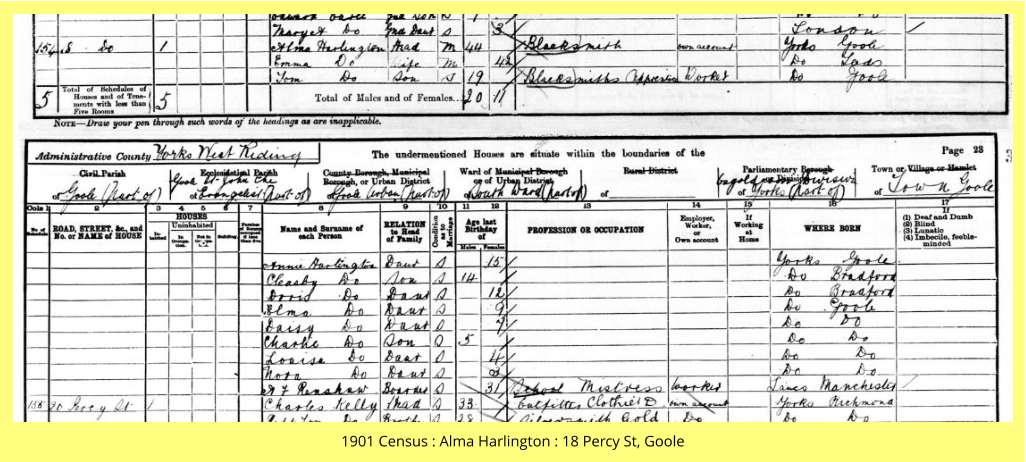 Margaret Do Gnd Daur S 3 London
154 18 Do 1 Alma Harlington Head M 44 Blacksmith own account Yorks Goole
Emma Do Wife M 42 Do
Tom Do Son S 19 Blacksmiths Apprentice Worker Do Goole
5 Total of Schedules of Houses and of Tenements with less than Five Rooms 5 Total of Males and of Females... 20 11
NOTE—Draw your pen through such words of the headings as are inapplicable.
Administrative County Yorks West Riding The undermentioned Houses are situate within the boundaries of the Page 23
Civil Parish Ecclesiastical Parish County Borough, Municipal Borough, or Urban District Ward of Municipal Borough or of Urban District Rural District Parliamentary Borough or Division Town or Village or Hamlet
of Goole (Part of) of Evangelist (Part of) of Goole Urban (Part of) of South Ward (part of) of of Yorks (Part of) of Town Goole
Cols 1 2 3 4 5 6 7 8 9 10 11 12 13 14 15 16 17
No. of Schedule ROAD, STREET, &c., and No. or NAME of HOUSE HOUSES Inhabited Uninhabited In Occupation Not in Occupation Building Name and Surname of each Person RELATION to Head of Family Condition as to Marriage Age last Birthday of Males Females PROFESSION OR OCCUPATION Employer, Worker, or Own account If Working at Home WHERE BORN If (1) Deaf and Dumb (2) Blind (3) Lunatic (4) Imbecile, feeble-minded
Annie Harlington Daur S 15 Yorks Goole
Cleasby Do Son S 14 Do Bradford
Doris Do Daur S 12 Do Bradford
Elma Do Daur S 9 Do Goole
Daisy Do Daur S 7 Do Do
Charlie Do Son S 5 Do Do
Louisa Do Daur S 4 Do Do
Nora Do Daur S 3 Do Do
A F Renshaw Boarder S 31 School Mistress Worker Lancs Manchester
155 20 Percy St 1 Charles Kelly Head S 33 Outfitter Clothier D own account Yorks Richmond
28 Gold Do Do Do
1901 Census : Alma Harlington : 18 Percy St, Goole